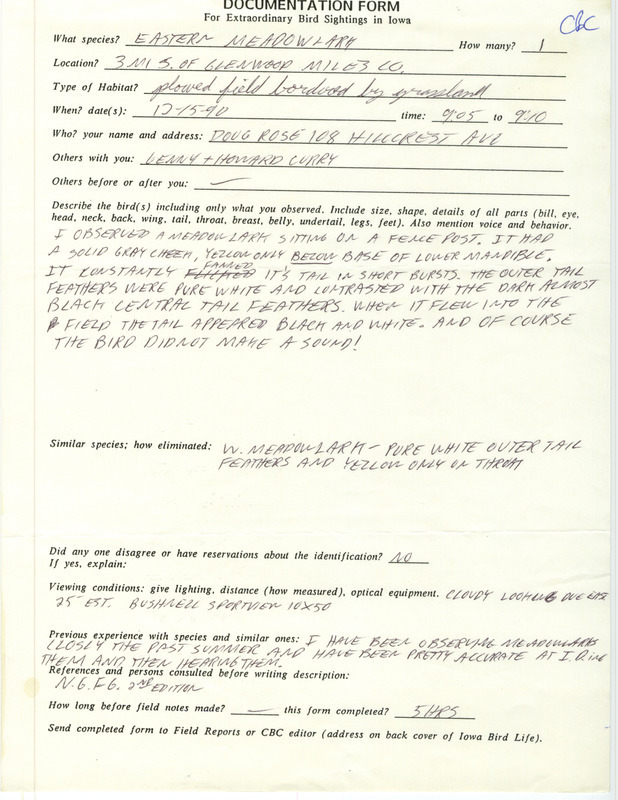 DOCUMENTATION FORM
For Extraordinary Bird Sightings in Iowa
CBC
What species? EASTERN MEADOWLARK How many? 1
Location? 3 MI S. OF GLENWOOD MILLS CO.
Type of Habitat? plowed field bordered by grassland
When? date(s): 12-15-90 time: 9:05 to 9:10
Who? your name and address: DOUG ROSE 108 HILLCREST AVE
Others with you: LENNY + HOWARD CURRY
Others before or after you: —
Describe the bird(s) including only what you observed. Include size, shape, details of all parts (bill, eye,
head, neck, back, wing, tail, throat, breast, belly, undertail, legs, feet). Also mention voice and behavior.
I OBSERVED A MEADOWLARK SITTING ON A FENCE POST. IT HAD
A SOLID GRAY CHEEK, YELLOW ONLY BELOW BASE OF LOWER MANDIBLE.
IT CONSTANTLY FANNED IT'S TAIL IN SHORT BURSTS. THE OUTER TAIL
FEATHERS WERE PURE WHITE AND CONTRASTED WITH THE DARK ALMOST
BLACK CENTRAL TAIL FEATHERS. WHEN IT FLEW INTO THE
FIELD THE TAIL APPEARED BLACK AND WHITE. AND OF COURSE
THE BIRD DID NOT MAKE A SOUND!
Similar species; how eliminated: W. MEADOWLARK - PURE WHITE OUTER TAIL
FEATHERS AND YELLOW ONLY ON THROAT
Did any one disagree or have reservations about the identification? NO
If yes, explain:
Viewing conditions: give lighting, distance (how measured), optical equipment. CLOUDY LOOKING DUE EAST
25' EST. BUSHNELL SPORTVIEW 10X50
Previous experience with species and similar ones: I HAVE BEEN OBSERVING MEADOWLARKS
CLOSLY THE PAST SUMMER AND HAVE BEEN PRETTY ACCURATE AT I.D.ing
THEM AND THEN HEARING THEM.
References and persons consulted before writing description:
N.G.F.G. 2ND EDITION
How long before field notes made? — this form completed? 5 HRS
Send completed form to Field Reports or CBC editor (address on back cover of Iowa Bird Life).